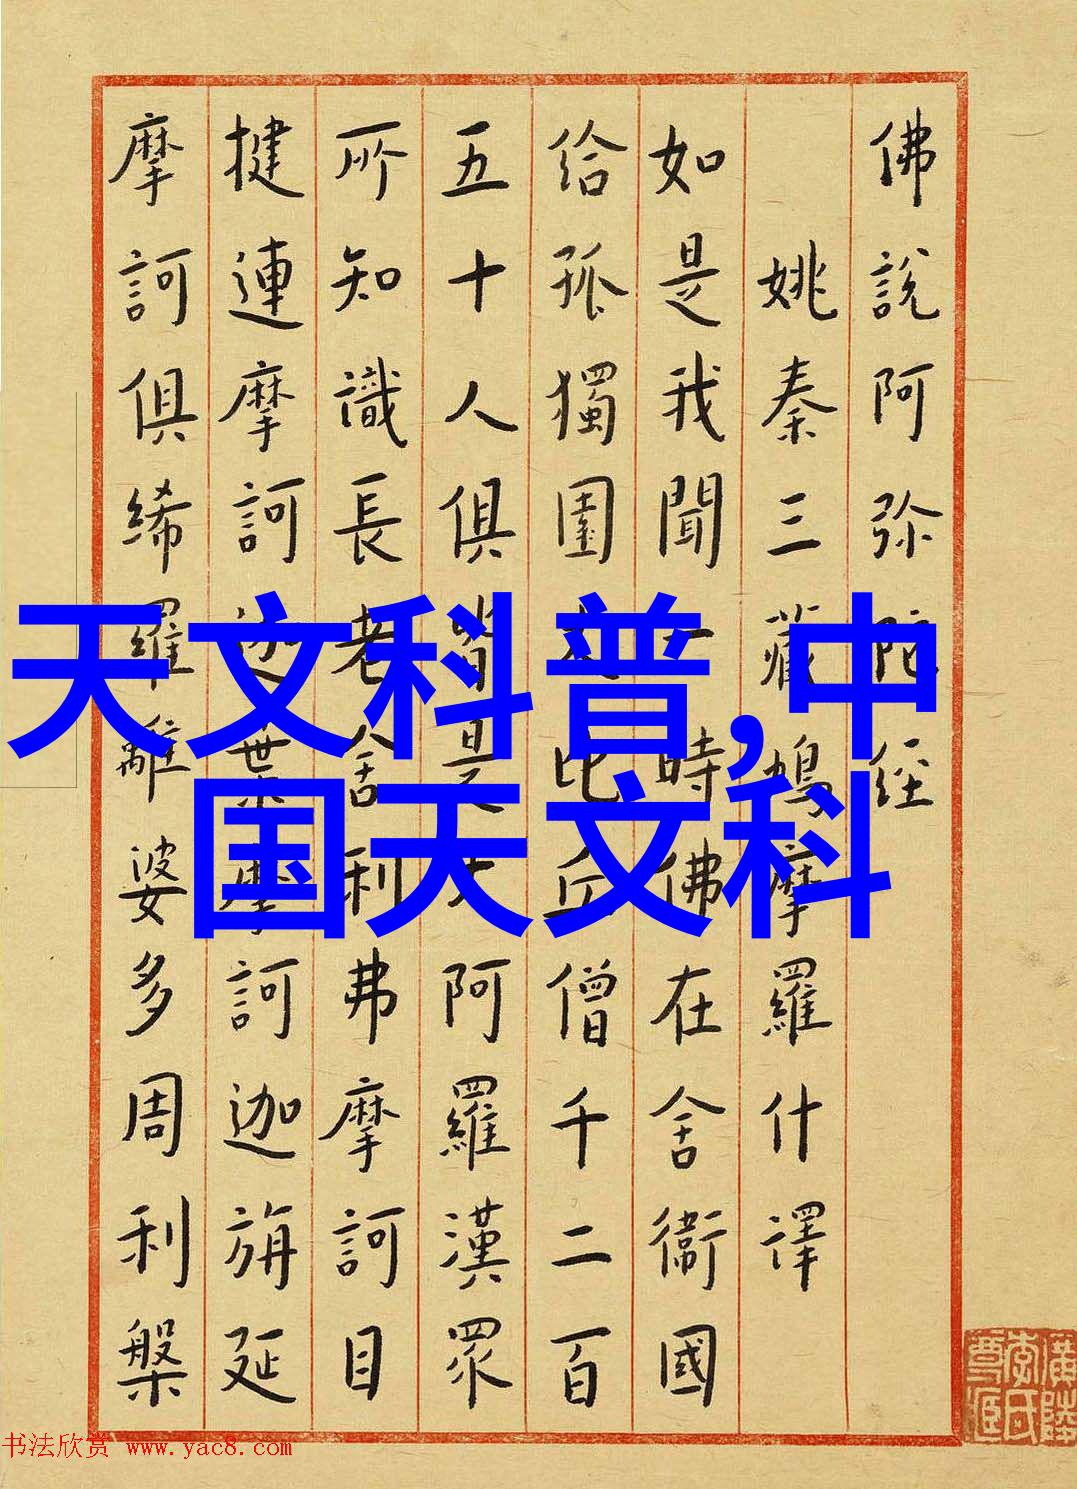 佛說阿弥陀经
姚秦三藏鳩摩羅什譯
如是我聞一時佛在舍衞國
给孤獨園大比丘僧千二百
五十人俱皆是大阿羅漢眾
所知識長老舍利弗摩訶目
揵連摩訶迦葉摩訶迦旃延
摩訶俱絺羅離婆多周利槃
天文科普,中
国天文科
书法欣赏 www.yac8.com